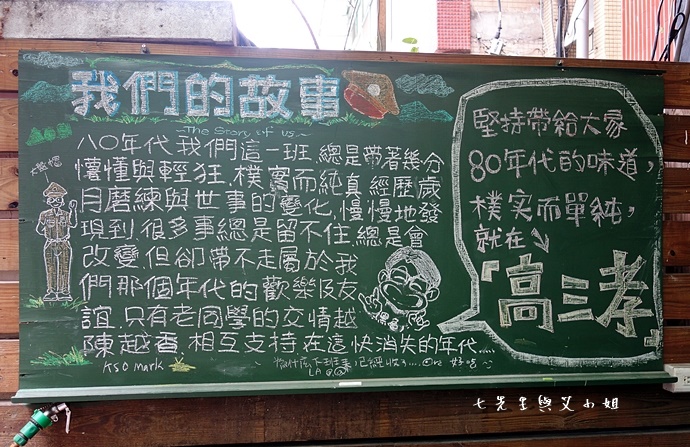 我們的故事
~The Story of us~
八〇年代我們這一班,總是帶著幾分
懵懂與輕狂,樸實而純真,經歷歲
月磨練與世事的變化,慢慢地發
現到很多事總是留不住,總是會
改變,但卻帶不走屬於我
們那個年代的歡樂及友
誼,只有老同學的交情越
陳越香,相互支持在這快消失的年代.....
KSO Mark
大盤帽
堅持帶給大家
80年代的味道,
樸實而單純,
就在
「高三孝」
七先生與艾小姐